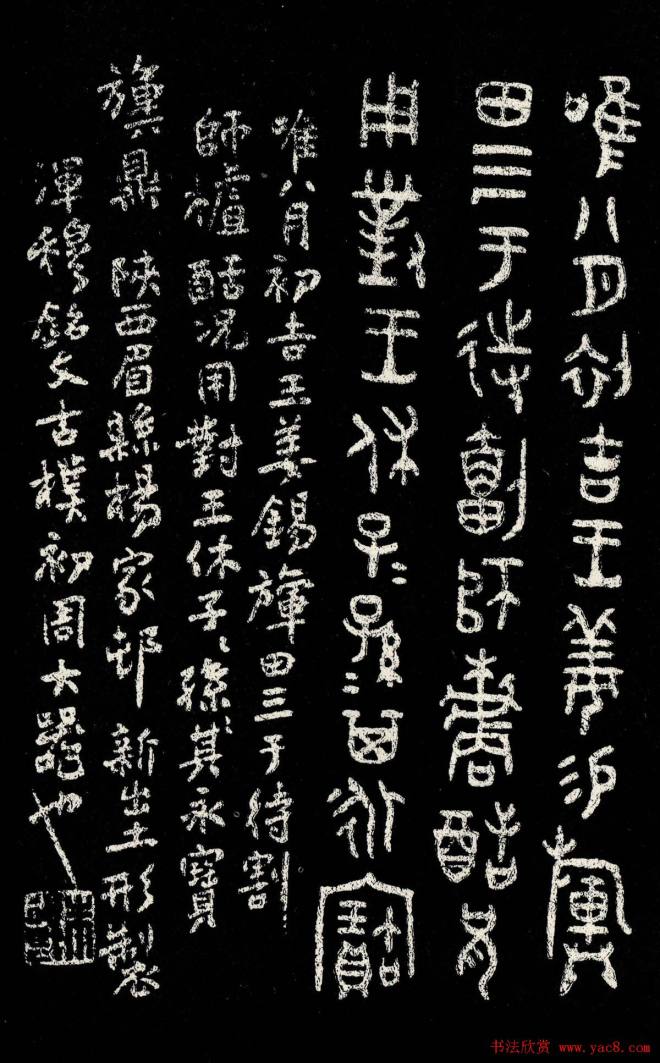 唯八月初吉王姜易
田三于待劃師櫨酷兄
用對王休子〻孫〻其永寶
唯八月初吉王姜錫田三于待割
師櫨酷況用對王休子〻孫〻其永寶
旟鼎 陝西眉縣楊家邨新出土形製
渾穆銘文古樸初周大器也
书法欣赏 www.yac8.com